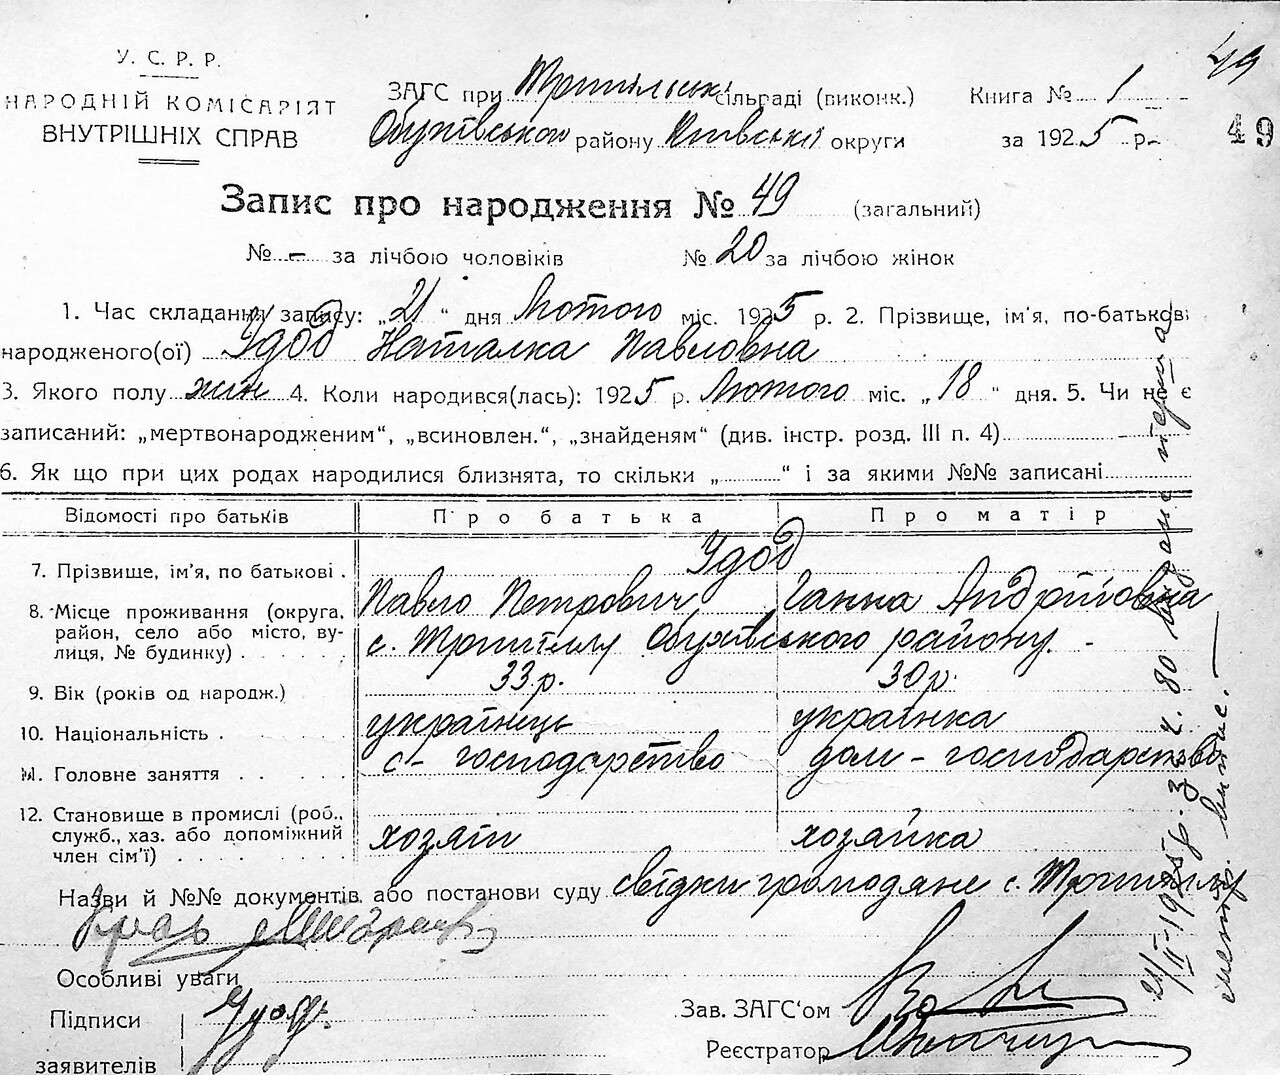 У. С. Р. Р.
НАРОДНІЙ КОМІСАРІЯТ
ВНУТРІШНІХ СПРАВ
49
49
ЗАГС при Трипільськ. сільраді (виконк.)
Обухівськом району Київської округи
Книга № 1
за 1925 р.
Запис про народження № 49 (загальний)
№ – за лічбою чоловіків № 20 за лічбою жінок
1. Час складання запису: „21“ дня Лютого міс. 1925 р. 2. Прізвище, ім'я, по-батькові
народженого(ої) Удод Наталка Павловна
3. Якого полу жин 4. Коли народився(лась): 1925 р. Лютого міс. „18“ дня. 5. Чи не є
записаний: „мертвонародженим“, „всиновлен.“, „знайденям“ (див. інстр. розд. III п. 4)
6. Як що при цих родах народилися близнята, то скільки „ “ і за якими №№ записані
Відомості про батьків Про батька Про матір
7. Прізвище, ім'я, по батькові . Удод
Павло Петрович Ганна Андріївна
8. Місце проживання (округа, район, село або місто, вулиця, № будинку) с. Трипілля Обухівського району. -
9. Вік (років од народж.) 33 р. 30 р.
10. Національність українець українка
11. Головне заняття с - господарство дом - господарство
12. Становище в промислі (роб., служб., хаз. або допоміжний член сім'ї) хозяїн хозяйка
Назви й №№ документів або постанови суду свідки громодяне с. Трипілля
Особливі уваги
Підписи заявителів Удод
Зав. ЗАГС'ом
Реєстратор
21/II-1925 р. З ч. 80 видано перша
метр. випис.